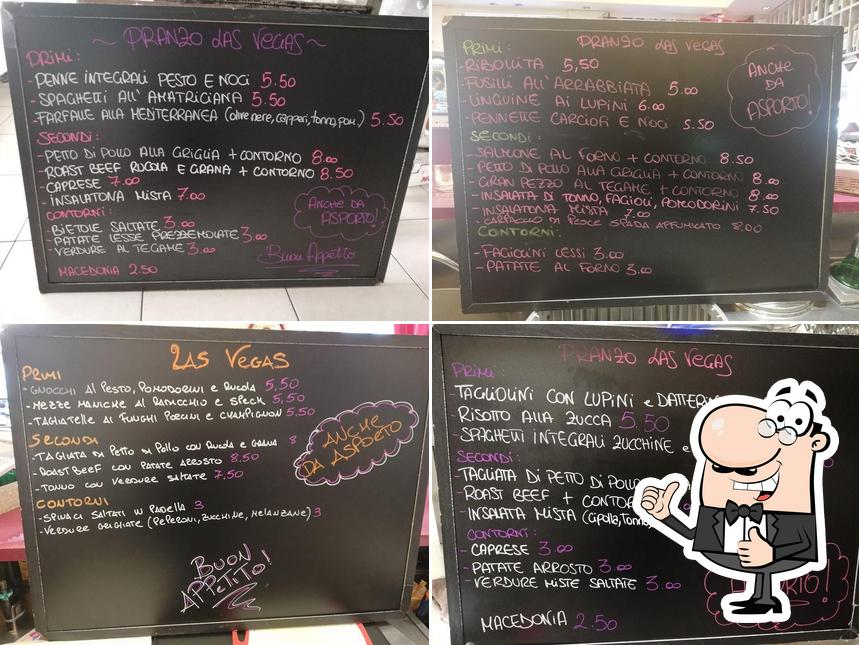 ~ PRANZO LAS VEGAS ~
PRIMI:
-PENNE INTEGRALI PESTO E NOCI 5.50
-SPAGHETTI ALL'AMATRICIANA 5.50
-FARFALLE ALLA MEDITERRANEA (olive nere, capperi, tonno, pom.) 5.50
SECONDI:
-PETTO DI POLLO ALLA GRIGLIA + CONTORNO 8.00
-ROAST BEEF RUCOLA E GRANA + CONTORNO 8.50
-CAPRESE 7.00
-INSALATONA MISTA 7.00
CONTORNI:
-BIETOLE SALTATE 3.00
-PATATE LESSE PREZZEMOLATE 3.00
-VERDURE AL TEGAME 3.00
MACEDONIA 2.50
ANCHE DA
ASPORTO!
Buon Appetito
PRIMI: PRANZO LAS VEGAS
-RIBOLLITA 5,50
-FUSILLI ALL'ARRABBIATA 5.00
-LINGUINE AI LUPINI 6.00
-PENNETTE CARCIOFI E NOCI 5.50
SECONDI:
-SALMONE AL FORNO + CONTORNO 8.50
-PETTO DI POLLO ALLA GRIGLIA + CONTORNO 8.00
-GRAN PEZZO AL TEGAME + CONTORNO 8.00
-INSALATA DI TONNO, FAGIOLI, POMODORINI 7.50
-INSALATONA MISTA 7.00
-CARPACCIO DI PESCE SPADA AFFUMICATO 8.00
CONTORNI:
-FAGIOLINI LESSI 3.00
-PATATE AL FORNO 3.00
ANCHE
DA
ASPORTO!
LAS VEGAS
PRIMI
-GNOCCHI AL PESTO, POMODORINI E RUCOLA 5,50
-MEZZE MANICHE AL RADICCHIO E SPECK 5,50
-TAGLIATELLE AI FUNGHI PORCINI E CHAMPIGNON 5,50
SECONDI
-TAGLIATA DI PETTO DI POLLO CON RUCOLA E GRANA 8
-ROAST BEEF CON PATATE ARROSTO 8.50
-TONNO CON VERDURE SALTATE 7,50
CONTORNI
-SPINACI SALTATI IN PADELLA 3
-VERDURE GRIGLIATE (PEPERONI, ZUCCHINE, MELANZANE) 3
ANCHE
DA ASPORTO
BUON
APPETITO!
PRANZO LAS VEGAS
PRIMI:
-TAGLIOLINI CON LUPINI e
-RISOTTO ALLA ZUCCA 5.50
-SPAGHETTI INTEGRALI ZUCCHINE e
SECONDI:
-TAGLIATA DI PETTO DI
-ROAST BEEF +
-INSALATA MISTA (cipolla,
CONTORNI:
-CAPRESE 3.00
-PATATE ARROSTO 3.00
-VERDURE MISTE SALTATE 3.00
MACEDONIA 2.50